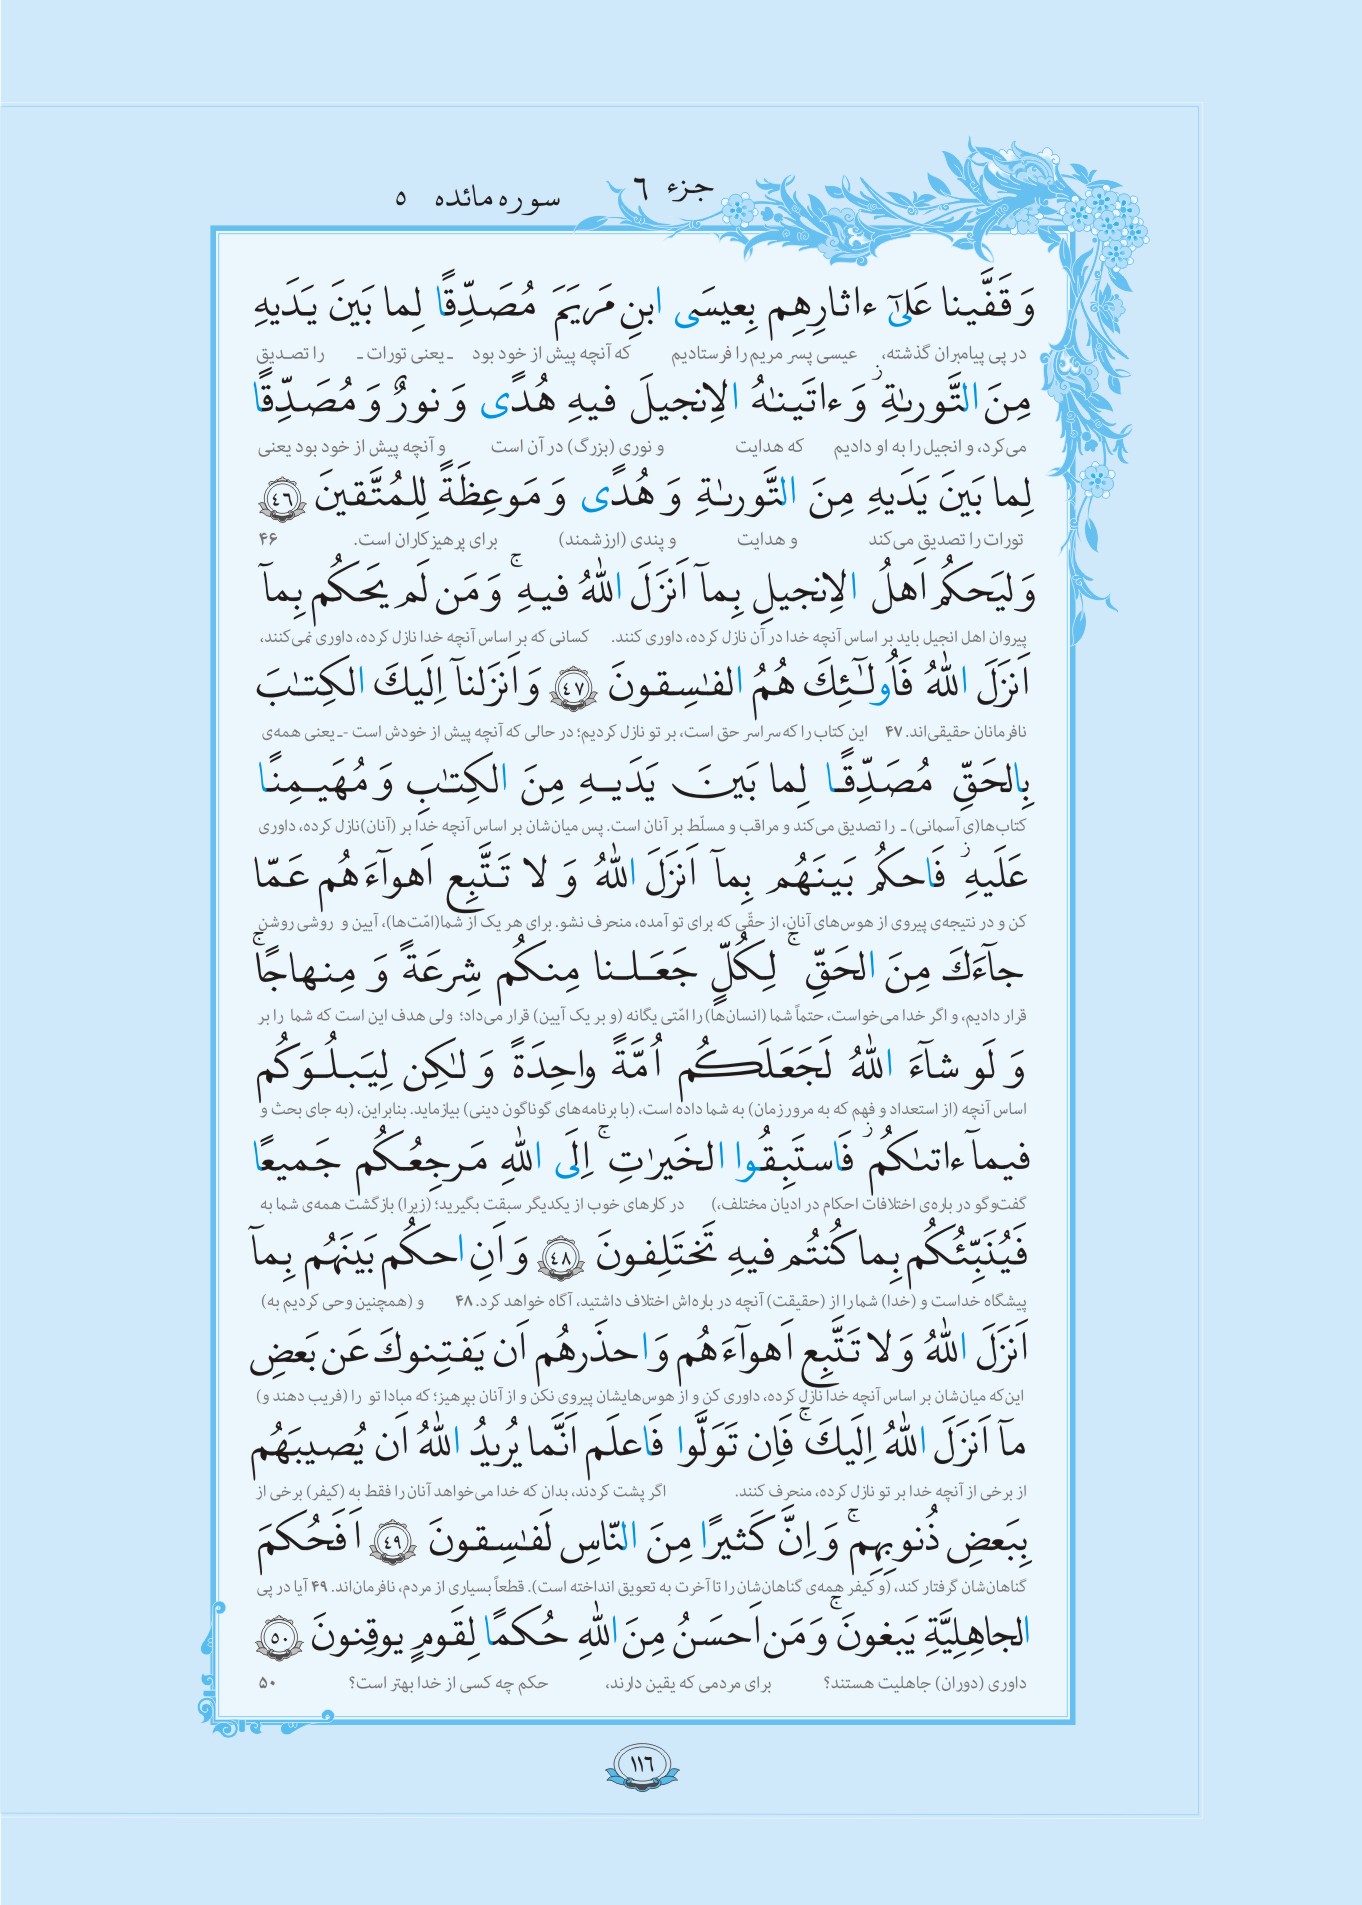 جزء ٦
سوره مائده ٥
وَ قَفَّينا عَلىٰٓ ءاثارِهِم بِعيسَى ابنِ مَريَمَ مُصَدِّقًا لِما بَينَ يَدَيهِ
در پی پیامبران گذشته، عیسی پسر مریم را فرستادیم که آنچه پیش از خود بود ـ یعنی تورات ـ را تصدیق
مِنَ التَّورىٰةِ ۖ وَ ءاتَينٰهُ الاِنجيلَ فيهِ هُدًى وَ نورٌ وَ مُصَدِّقًا
می‌کرد، و انجیل را به او دادیم که هدایت و نوری (بزرگ) در آن است و آنچه پیش از خود بود یعنی
لِما بَينَ يَدَيهِ مِنَ التَّورىٰةِ وَ هُدًى وَ مَوعِظَةً لِلمُتَّقينَ ﴿٤٦﴾
تورات را تصدیق می‌کند و هدایت و پندی (ارزشمند) برای پرهیزکاران است. ۴۶
وَليَحكُم اَهلُ الاِنجيلِ بِمآ اَنزَلَ اللهُ فيهِ ۚ وَ مَن لَم يَحكُم بِمآ
پیروان اهل انجیل باید بر اساس آنچه خدا در آن نازل کرده، داوری کنند. کسانی که بر اساس آنچه خدا نازل کرده، داوری نمی‌کنند،
اَنزَلَ اللهُ فَاُولٰٓئِكَ هُمُ الفٰسِقونَ ﴿٤٧﴾ وَ اَنزَلنآ اِلَيكَ الكِتٰبَ
نافرمانان حقیقی‌اند. ۴۷ این کتاب را که سراسر حق است، بر تو نازل کردیم؛ در حالی که آنچه پیش از خودش است -ـ یعنی همه‌ی
بِالحَقِّ مُصَدِّقًا لِما بَينَ يَدَيهِ مِنَ الكِتٰبِ وَ مُهَيمِنًا
کتاب‌ها(ی آسمانی) ـ را تصدیق می‌کند و مراقب و مسلّط بر آنان است. پس میان‌شان بر اساس آنچه خدا بر (آنان)نازل کرده، داوری
عَلَيهِ ۖ فَاحكُم بَينَهُم بِمآ اَنزَلَ اللهُ وَ لا تَتَّبِع اَهوآءَهُم عَمّا
کن و در نتیجه‌ی پیروی از هوس‌های آنان، از حقّی که برای تو آمده، منحرف نشو. برای هر یک از شما(امّت‌ها)، آیین و روشی روشن
جآءَكَ مِنَ الحَقِّ ۚ لِكُلٍّ جَعَلنا مِنكُم شِرعَةً وَ مِنهاجًا ۚ
قرار دادیم، و اگر خدا می‌خواست، حتماً شما (انسان‌ها) را امّتی یگانه (و بر یک آیین) قرار می‌داد؛ ولی هدف این است که شما را بر
وَ لَو شآءَ اللهُ لَجَعَلَكُم اُمَّةً واحِدَةً وَ لٰكِن لِيَبلُوَكُم
اساس آنچه (از استعداد و فهم که به مرور زمان) به شما داده است، (با برنامه‌های گوناگون دینی) بیازماید. بنابراین، (به جای بحث و
فيمآ ءاتىٰكُم ۖ فَاستَبِقُوا الخَيرٰتِ ۚ اِلَى اللهِ مَرجِعُكُم جَميعًا
گفت‌وگو در باره‌ی اختلافات احکام در ادیان مختلف،) در کارهای خوب از یکدیگر سبقت بگیرید؛ (زیرا) بازگشت همه‌ی شما به
فَيُنَبِّئُكُم بِما كُنتُم فيهِ تَختَلِفونَ ﴿٤٨﴾ وَ اَنِ احكُم بَينَهُم بِمآ
پیشگاه خداست و (خدا) شما را از (حقیقت) آنچه در باره‌اش اختلاف داشتید، آگاه خواهد کرد. ۴۸ و (همچنین وحی کردیم به)
اَنزَلَ اللهُ وَ لا تَتَّبِع اَهوآءَهُم وَاحذَرهُم اَن يَفتِنوكَ عَن بَعضِ
این‌که میان‌شان بر اساس آنچه خدا نازل کرده، داوری کن و از هوس‌هایشان پیروی نکن و از آنان بپرهیز؛ که مبادا تو را (فریب دهند و)
مآ اَنزَلَ اللهُ اِلَيكَ ۚ فَاِن تَوَلَّوا فَاعلَم اَنَّما يُريدُ اللهُ اَن يُصيبَهُم
از برخی از آنچه خدا بر تو نازل کرده، منحرف کنند. اگر پشت کردند، بدان که خدا می‌خواهد آنان را فقط به (کیفر) برخی از
بِبَعضِ ذُنوبِهِم ۚ وَ اِنَّ كَثيرًا مِنَ النّاسِ لَفٰسِقونَ ﴿٤٩﴾ اَفَحُكمَ
گناهان‌شان گرفتار کند، (و کیفر همه‌ی گناهان‌شان را تا آخرت به تعویق انداخته است). قطعاً بسیاری از مردم، نافرمان‌اند. ۴۹ آیا در پی
الجاهِلِيَّةِ يَبغونَ ۚ وَ مَن اَحسَنُ مِنَ اللهِ حُكمًا لِقَومٍ يوقِنونَ ﴿٥٠﴾
داوری (دوران) جاهلیت هستند؟ برای مردمی که یقین دارند، حکم چه کسی از خدا بهتر است؟ ۵۰
١١٦